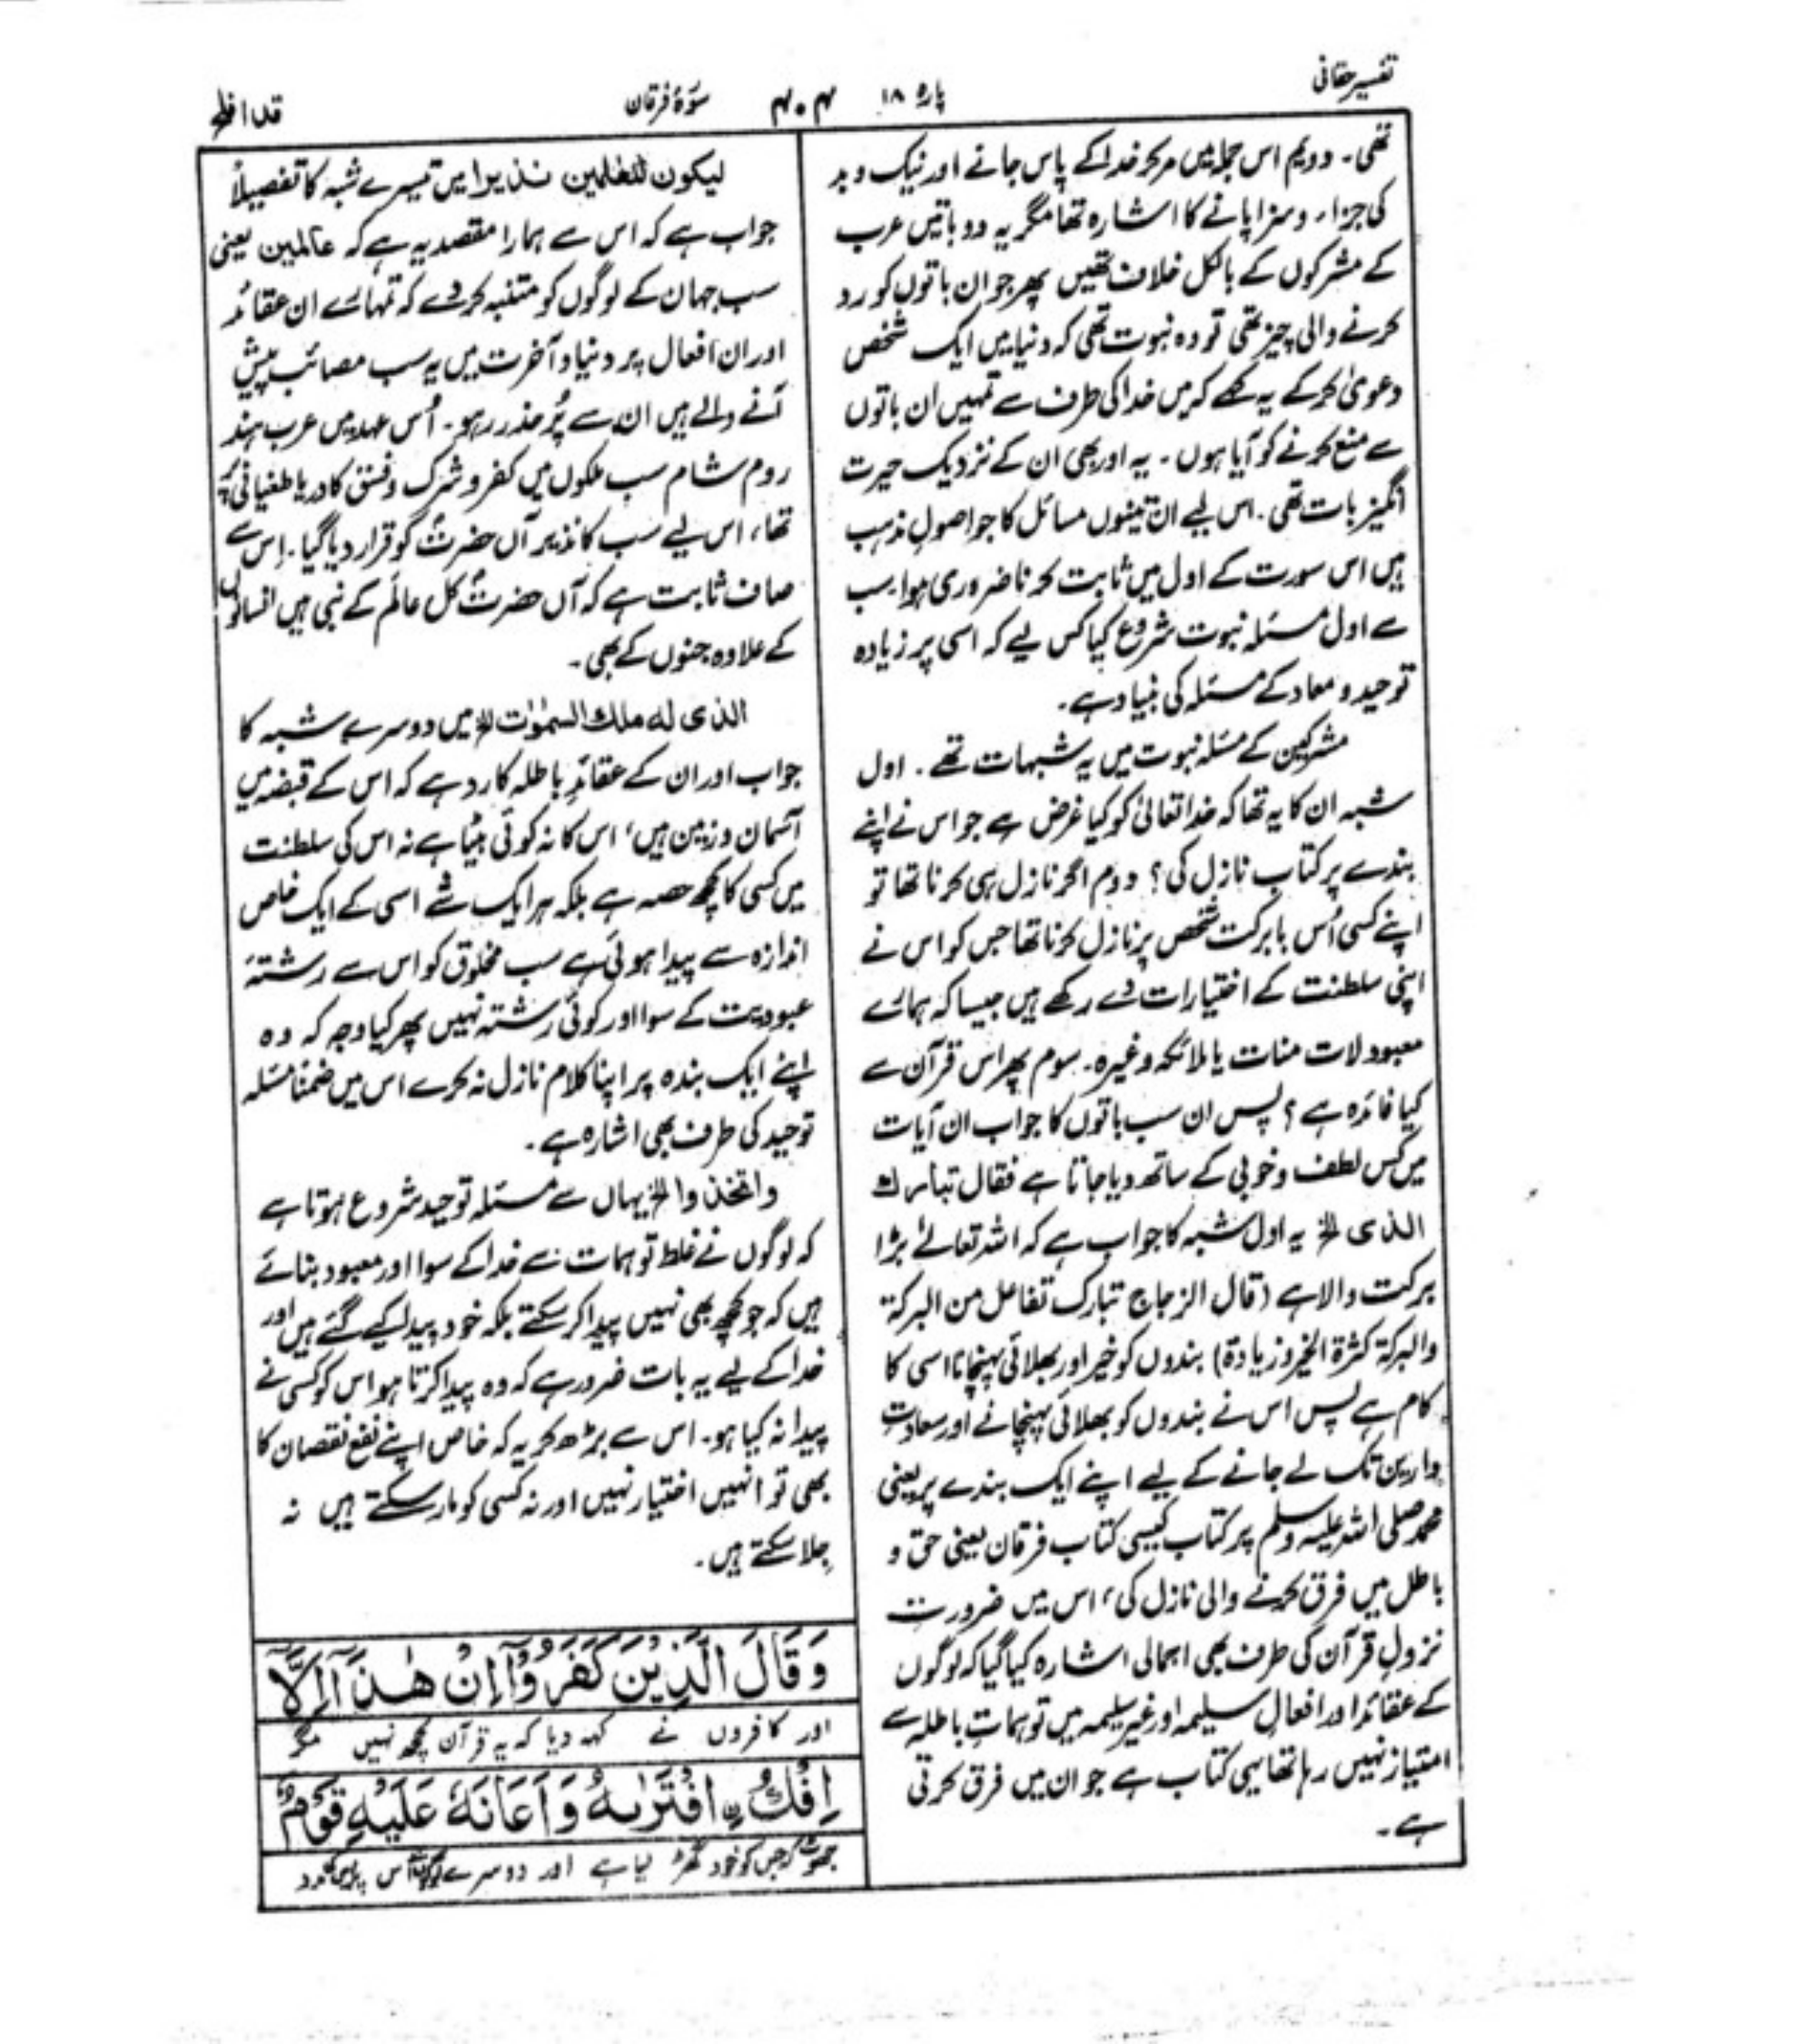 تفسیر حقانی
پارہ ۱۸
۴۰۴
سورۂ فرقان
قد افلح
تھی۔ دویم اس جملہ میں مر کر خدا کے پاس جانے اور نیک و بد
کی جزا، و سزا پانے کا اشارہ تھا مگر یہ دو باتیں عرب
کے مشرکوں کے بالکل خلاف تھیں پھر جو ان باتوں کو رد
کرنے والی چیز تھی تو وہ نبوت تھی کہ دنیا میں ایک شخص
دعویٰ کر کے یہ کہے کہ میں خدا کی طرف سے تمہیں ان باتوں
سے منع کرنے کو آیا ہوں۔ یہ اور بھی ان کے نزدیک حیرت
انگیز بات تھی۔ اس لیے ان تینوں مسائل کا جو اصول مذہب
ہیں اس سورت کے اول میں ثابت کرنا ضروری ہوا۔ سب
سے اول مسئلہ نبوت شروع کیا کس لیے کہ اسی پر زیادہ
توحید و معاد کے مسئلہ کی بنیاد ہے۔
مشرکین کے مسئلہ نبوت میں یہ شبہات تھے۔ اول
شبہ ان کا یہ تھا کہ خدا تعالیٰ کو کیا غرض ہے جو اس نے اپنے
بندے پر کتاب نازل کی؟ دوم اگر نازل ہی کرنا تھا تو
اپنے کسی اُس بابرکت شخص پر نازل کرنا تھا جس کو اس نے
اپنی سلطنت کے اختیارات دے رکھے ہیں جیسا کہ ہمارے
معبود لات منات یا ملائکہ وغیرہ۔ سوم پھر اس قرآن سے
کیا فائدہ ہے؟ پس ان سب باتوں کا جواب ان آیات
میں کس لطف و خوبی کے ساتھ دیا جاتا ہے فقال تبارک
الذی الخ یہ اول شبہ کا جواب ہے کہ اللہ تعالےٰ بڑا
برکت والا ہے (قال الزجاج تبارک تفاعل من البرکۃ
والبرکۃ کثرۃ الخیر و زیادۃ) بندوں کو خیر اور بھلائی پہنچانا اسی کا
کام ہے پس اس نے بندوں کو بھلائی پہنچانے اور سعادت
دارین تک لے جانے کے لیے اپنے ایک بندے پر یعنی
محمد صلی اللہ علیہ وسلم پر کتاب کیسی کتاب فرقان یعنی حق و
باطل میں فرق کرنے والی نازل کی، اس میں ضرورت
نزول قرآن کی طرف بھی اجمالی اشارہ کیا گیا کہ لوگوں
کے عقائد اور افعال سلیمہ اور غیر سلیمہ میں توہمات باطلہ سے
امتیاز نہیں رہا تھا یہی کتاب ہے جو ان میں فرق کرتی
ہے۔
لیکون للعٰلمین نذیرا میں تیسرے شبہ کا تفصیلاً
جواب ہے کہ اس سے ہمارا مقصد یہ ہے کہ عالمین یعنی
سب جہان کے لوگوں کو متنبہ کر دے کہ تمہارے ان عقائد
اور ان افعال پر دنیا و آخرت میں یہ سب مصائب پیش
آنے والے ہیں ان سے پُر حذر رہو۔ اُس عہد میں عرب ہند
روم شام سب ملکوں میں کفر و شرک و فسق کا دریا طغیانی پر
تھا، اس لیے سب کا نذیر آں حضرتؐ کو قرار دیا گیا۔ اِس سے
صاف ثابت ہے کہ آں حضرتؐ کل عالم کے نبی ہیں انسانوں
کے علاوہ جنوں کے بھی۔
الذی لہ ملک السمٰوٰت الخ میں دوسرے شبہ کا
جواب اور ان کے عقائدِ باطلہ کا رد ہے کہ اس کے قبضہ میں
آسمان و زمین ہیں، اس کا نہ کوئی بیٹا ہے نہ اس کی سلطنت
میں کسی کا کچھ حصہ ہے بلکہ ہر ایک شے اسی کے ایک خاص
اندازہ سے پیدا ہوئی ہے سب مخلوق کو اس سے رشتۂ
عبودیت کے سوا اور کوئی رشتہ نہیں پھر کیا وجہ کہ وہ
اپنے ایک بندہ پر اپنا کلام نازل نہ کرے اس میں ضمناً مسئلہ
توحید کی طرف بھی اشارہ ہے۔
واتخذوا الخ یہاں سے مسئلہ توحید شروع ہوتا ہے
کہ لوگوں نے غلط توہمات سے خدا کے سوا اور معبود بنائے
ہیں کہ جو کچھ بھی نہیں پیدا کر سکتے بلکہ خود پیدا کیے گئے ہیں اور
خدا کے لیے یہ بات ضرور ہے کہ وہ پیدا کرتا ہو اس کو کسی نے
پیدا نہ کیا ہو۔ اس سے بڑھ کر یہ کہ خاص اپنے نفع نقصان کا
بھی تو انہیں اختیار نہیں اور نہ کسی کو مار سکتے ہیں نہ
جِلا سکتے ہیں۔
وَقَالَ الَّذِيْنَ كَفَرُوْٓا اِنْ هٰذَآ اِلَّآ
اور کافروں نے کہہ دیا کہ یہ قرآن کچھ نہیں مگر
اِفْكُ ۨافْتَرٰىهُ وَاَعَانَهٗ عَلَيْهِ قَوْمٌ
جھوٹ کہ جس کو خود گھڑ لیا ہے اور دوسرے لوگوں نے اس پر اس کی مدد